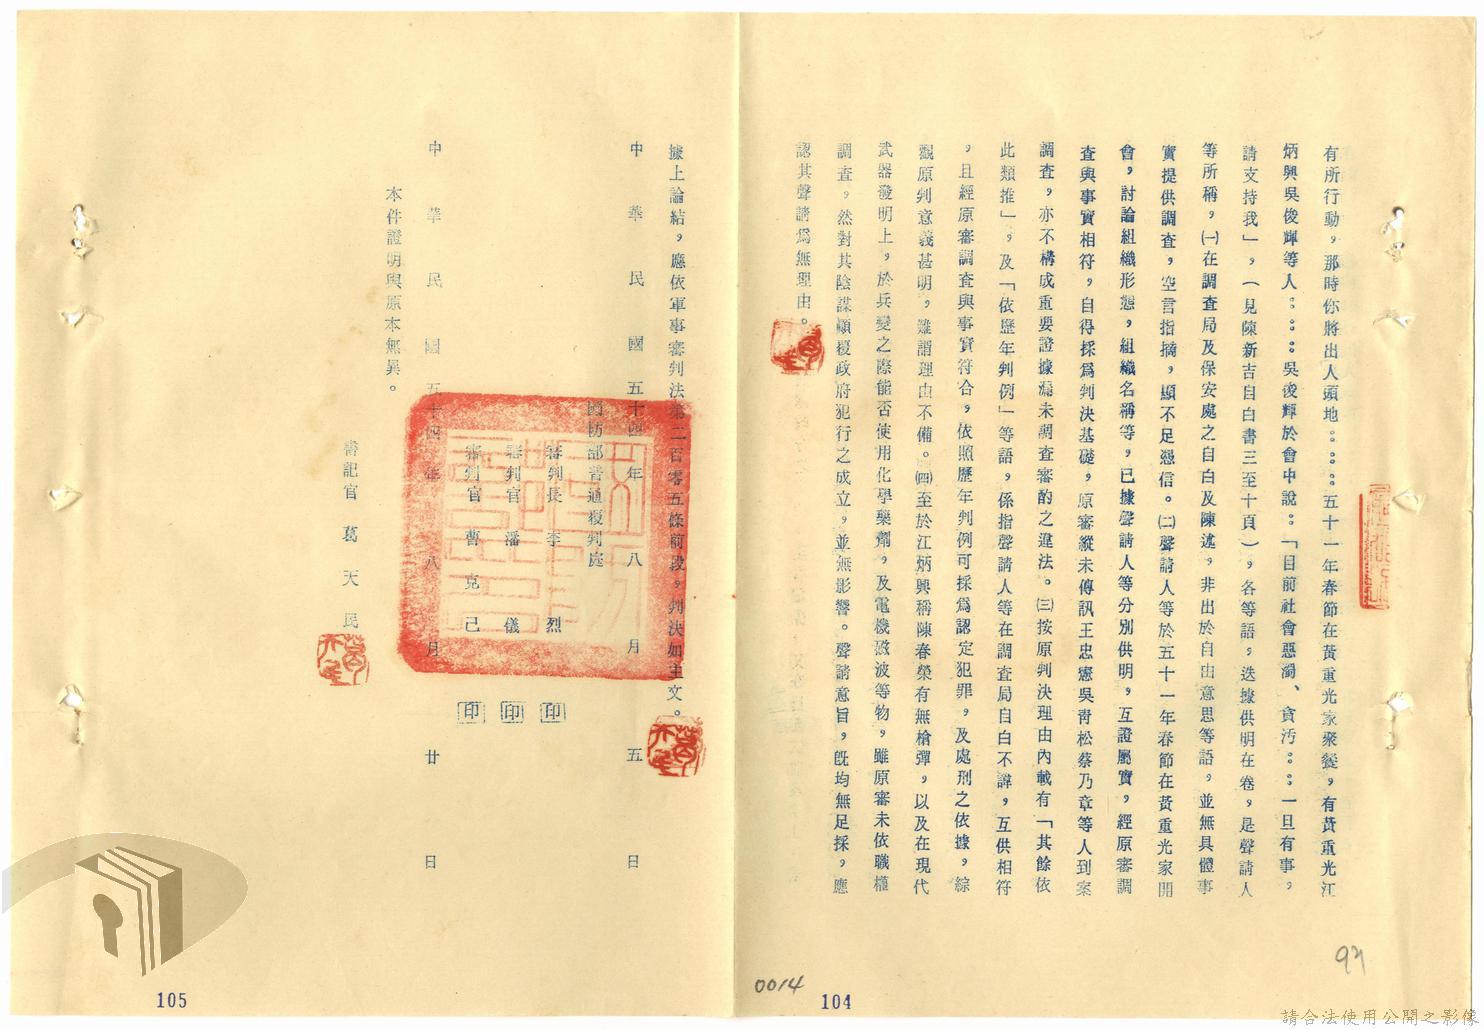 有所行動，那時你將出人頭地：：：：五十一年春節在黃重光家聚餐，有黃重光江
炳興吳俊輝等人：：：：吳俊輝於會中說：「目前社會惡濁、貪污：：一旦有事，
請支持我」，（見陳新吉自白書三至十頁），各等語，迭據供明在卷，是聲請人
等所稱，㈠在調查局及保安處之自白及陳述，非出於自由意思等語，並無具體事
實提供調查，空言指摘，顯不足憑信。㈡聲請人等於五十一年春節在黃重光家開
會，討論組織形態，組織名稱等，已據聲請人等分別供明，互證屬實，經原審調
查與事實相符，自得採為判決基礎，原審縱未傳訊王忠憲吳青松蔡乃章等人到案
調查，亦不構成重要證據漏未調查審酌之違法。㈢按原判決理由內載有「其餘依
此類推」，及「依歷年判例」等語，係指聲請人等在調查局自白不諱，互供相符
，且經原審調查與事實符合，依照歷年判例可採為認定犯罪，及處刑之依據，綜
觀原判意義甚明，難謂理由不備。㈣至於江炳興稱陳春榮有無槍彈，以及在現代
武器發明上，於兵變之際能否使用化學藥劑，及電機磁波等物，雖原審未依職權
調查，然對其陰謀顛覆政府犯行之成立，並無影響。聲請意旨，既均無足採，應
認其聲請為無理由。
據上論結，應依軍事審判法第二百零五條前段，判決如主文。
中華民國五十四年八月五日
國防部普通覆判庭
審判長 李 烈 印
審判官 潘 儀 印
審判官 曹克己 印
中華民國五十四年八月廿日
本件證明與原本無異。
書記官 葛天民
葛天民
葛天民
97
0014
104
105
請合法使用公開之影像